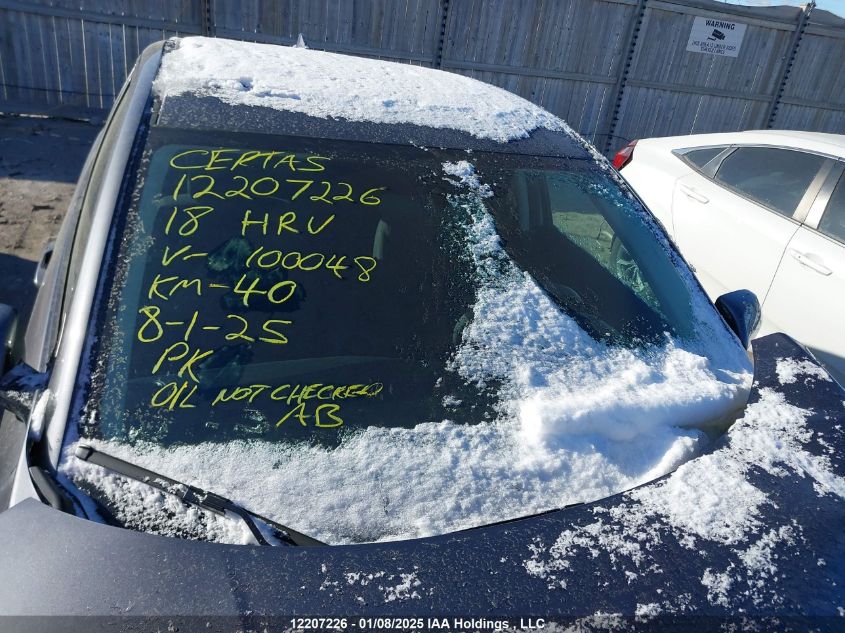 WARNING
CERTAS
12207226
18 HRV
V- 100048
KM-40
8-1-25
PK
OIL NOT CHECKED
AB
12207226 - 01/08/2025 IAA Holdings , LLC